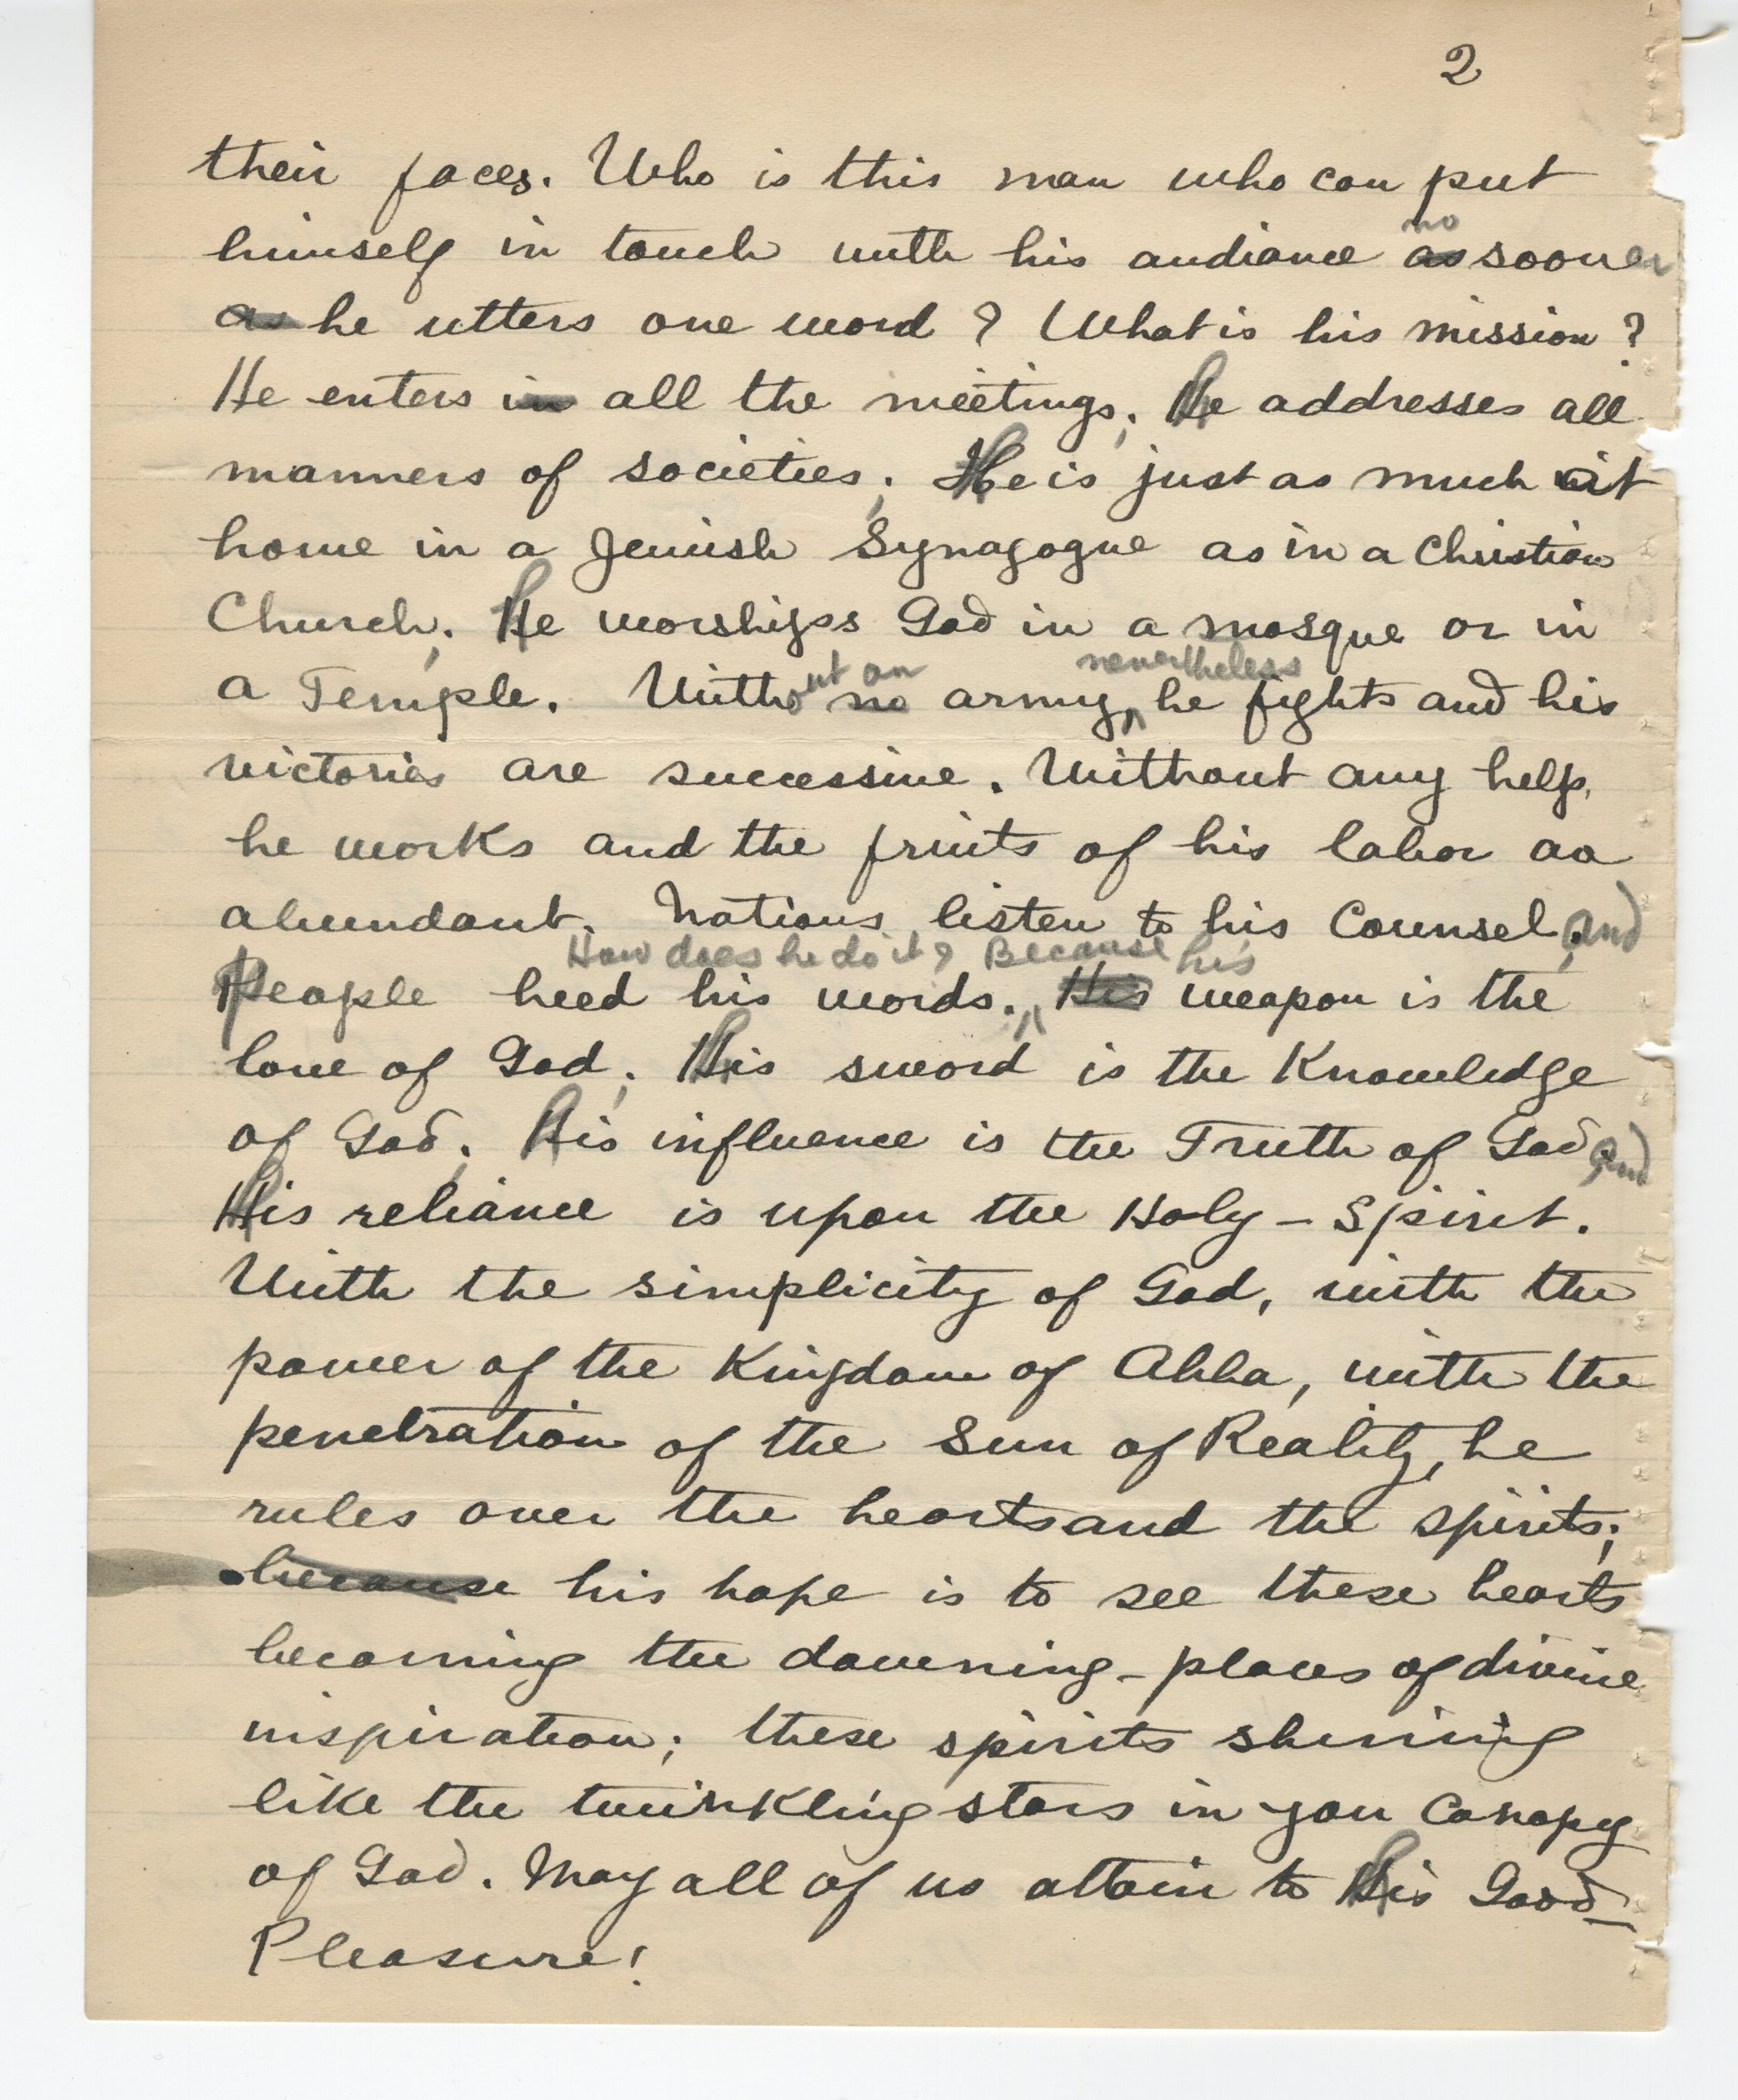 2
their faces. Who is this man who can put
no
himself in touch with his audiance as sooner
as he utters one word? What is his mission?
He enters in all the meetings; he addresses all
manners of societies; he is just as much at
home in a Jewish Synagogue as in a Christian
Church; he worships God in a mosque or in
an nevertheless
a Temple. Without no army, he fights and his
victories are successive. Without any help,
he works and the fruits of his labor aa
abundant. Nations listen to his counsel, and
How does he do it? Because his
people heed his words. His weapon is the
love of God; his sword is the Knowledge
of God; his influence is the Truth of God and
his reliance is upon the Holy-Spirit.
With the simplicity of God, with the
power of the Kingdom of Abha, with the
penetration of the Sun of Reality, he
rules over the hearts and the spirits;
because his hope is to see these hearts
becoming the dawning-places of divine
inspiration; these spirits shining
like the twinkling stars in yon canopy
of God. May all of us attain to his Good-
Pleasure!